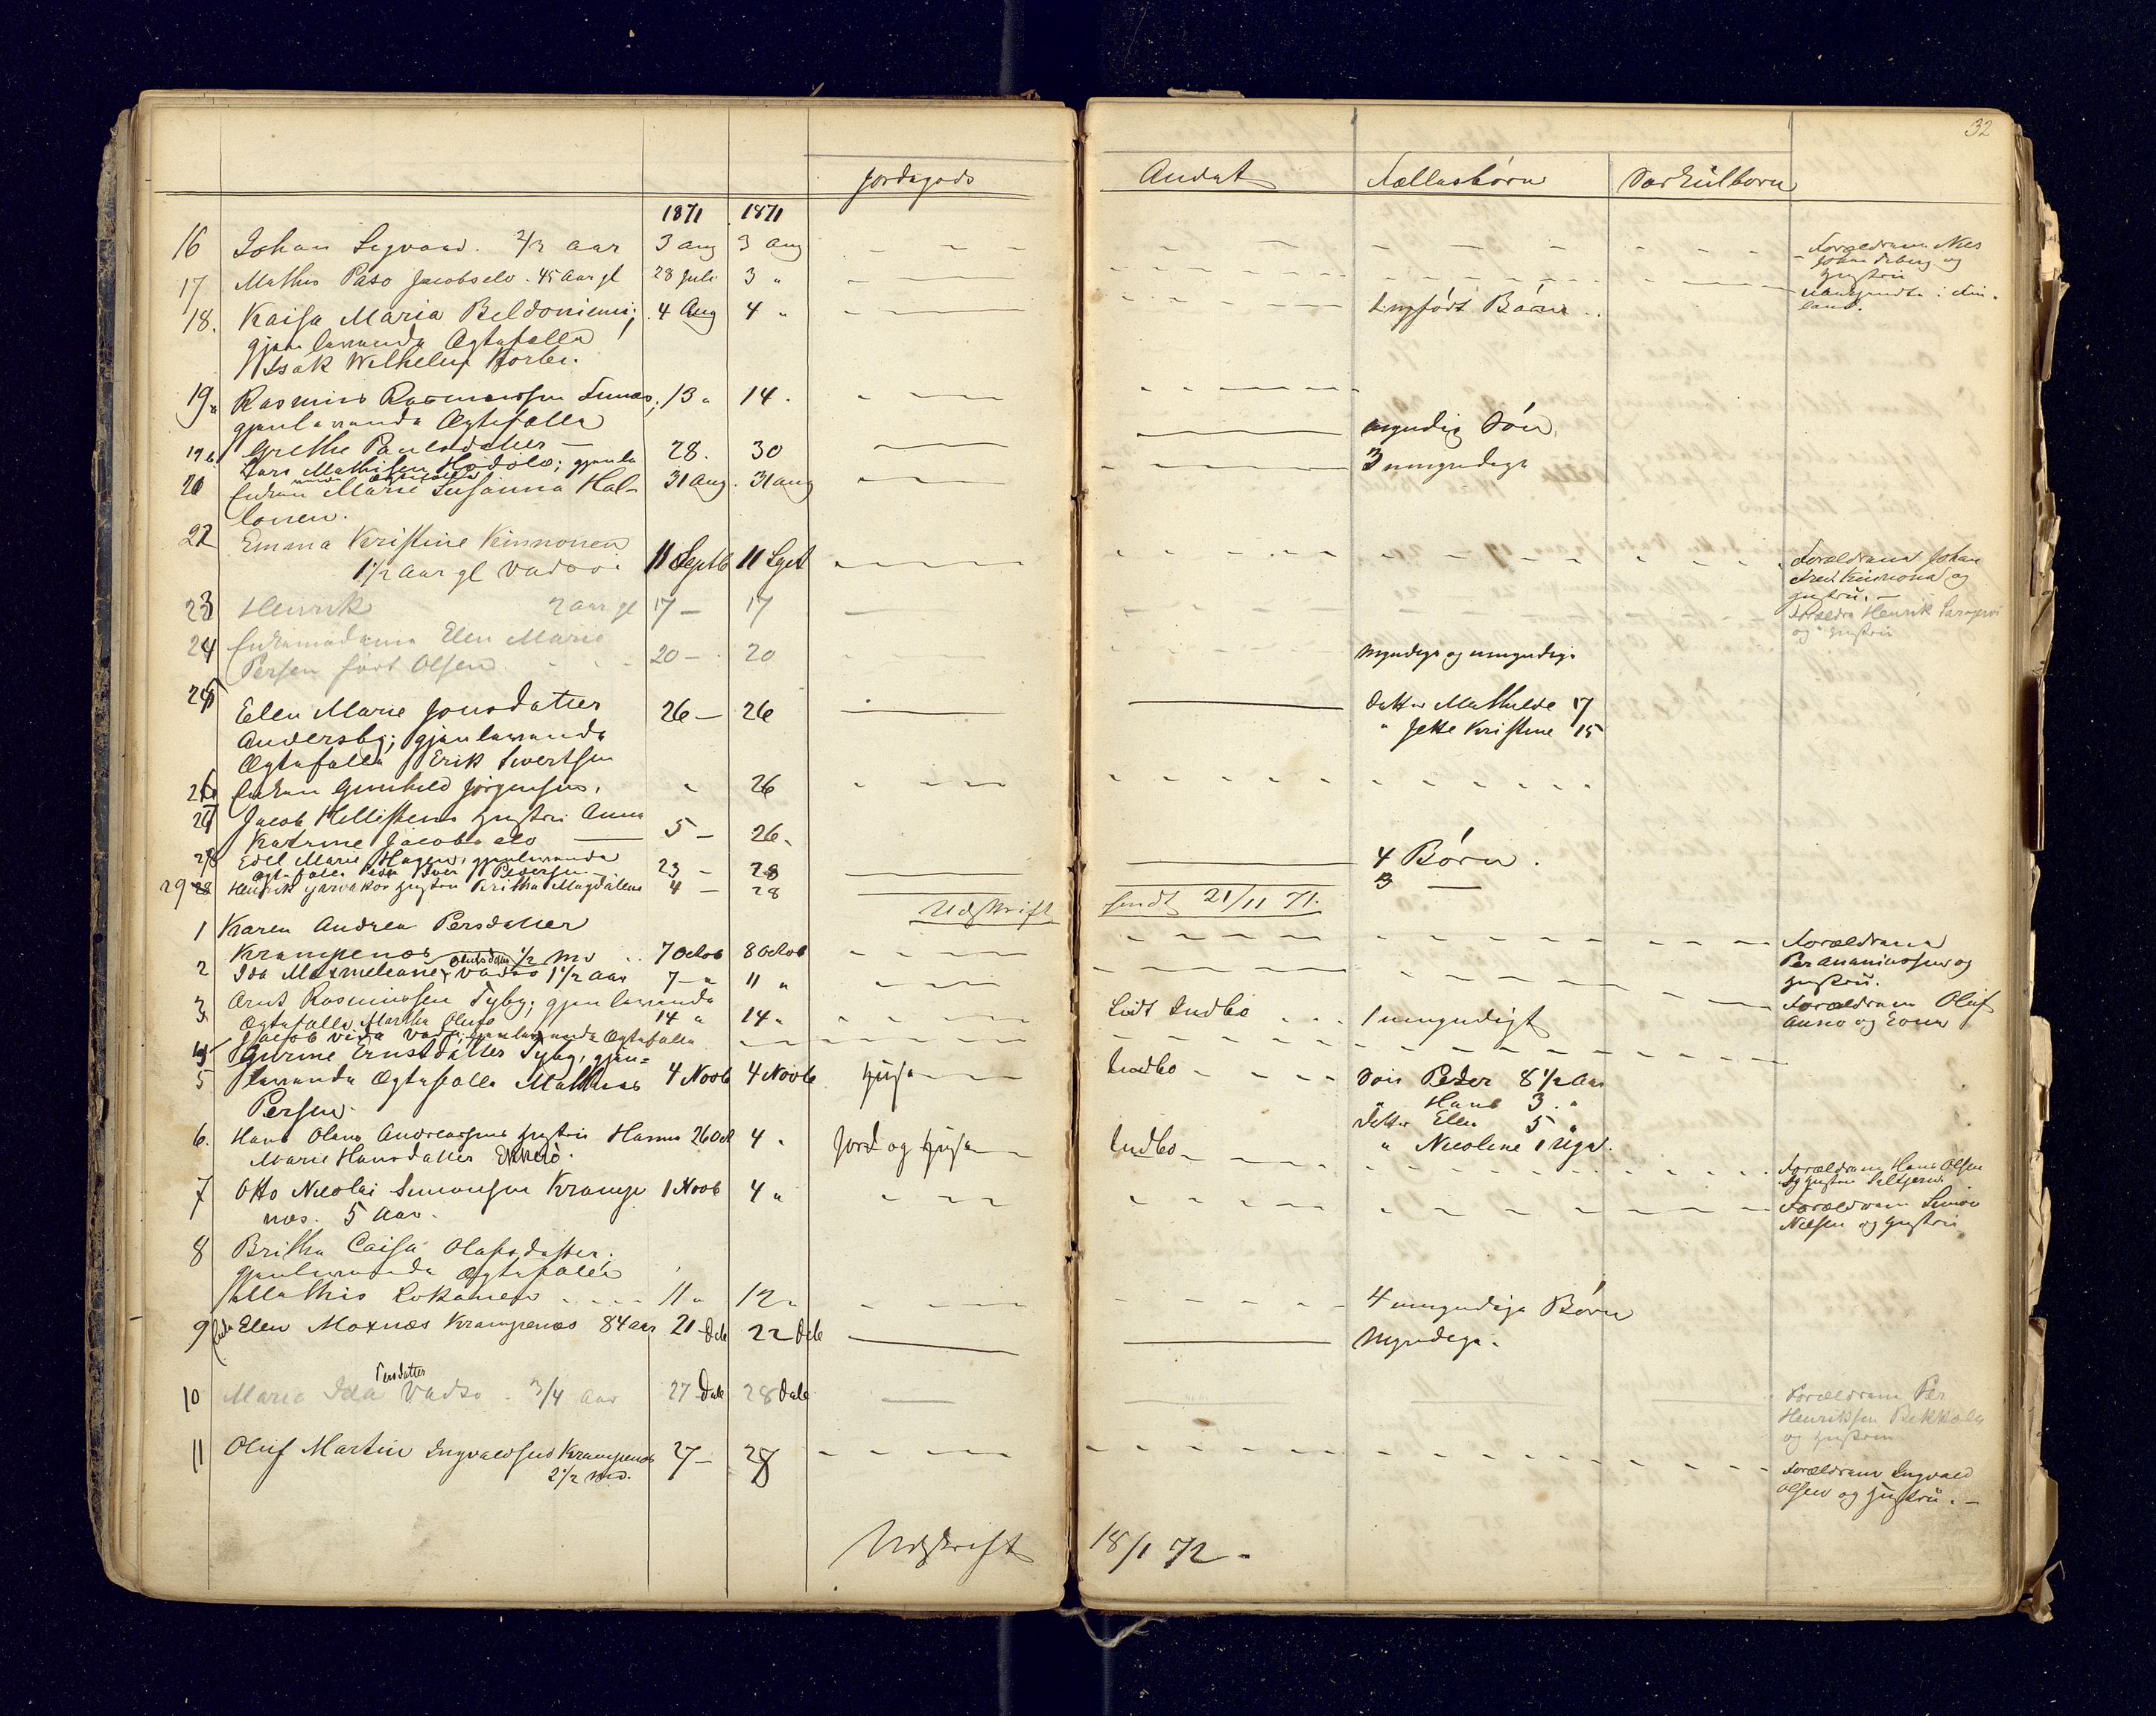 32
Jordegods Andet Fællesbørn Særkulbørn
1871 1871
16 Johan Sigvard. 2/3 Aar 3 Aug 3 Aug Forældrene Nils
Johan og
Hustru
17 Mathis Paso Jacobselv. 45 Aar gl 28 Juli 3 " ubekjendte i Fin-
land.
18. Kaisa Maria Beldoniemi; 4 Aug 4 " 1 nyfødt Barn
gjenlevende Ægtefælle
Isak Wilhelm Korbi.
19a Rasmus Rasmussen 13 " 14.
gjenlevende Ægtefælle
Grethe Paulsdatter — myndig Søn
19b Lars Mathisen; gjenle 28. 30 3 umyndige
vende Ægtefælle
20 Enken Marie Susanna Hal- 31 Aug. 31 Aug
lonen.
22 Emma Kristine Kinnonen
1 1/2 Aar gl Vadsø. 11 Septb 11 Sept Forældrene Johan
Fred. Kinnonen og
Hustru. —
23 Henrik 2 aar gl 17 — 17 Forældre Henrik
og Hustru
24 Enkemadame Elen Marie
Persen født Olsen 20 — 20 Myndige og umyndige
25 Ellen Marie Jonsdatter 26 — 26 Datter Mathilde 17
Andersby; gjenlevende " Jette Kristine 15
Ægtefælle Erik Sivertsen
26 Enken Gunhild Jørgensen. " 26
27 Jacob Hellistens Hustru Anna
Katrine Jacobselv 5 — 26.
28 Edel Marie Hagen, gjenlevende 4 Børn.
Ægtefælle Peder Iver Pedersen 23 — 28
29 Henrik Hustru Britha Magdalena 4 — 28 3 —
Udskrift sendt 21/11 71.
1 Karen Andrea Persdatter
Krampenæs 1/2 Md 7 Octob 8 Octob Forældrene
Per Ananiassen og
Hustru.
2 Ida Maxmeliane Olufsdatter Vadsø 1 1/2 Aar 7 — " 11 " Forældrene Oluf
Anno og Kone
3 Arnt Rasmussen Tyby, gjenlevende
Ægtefælle Martha Olufs 14 " 14 " Lidt Indbo 1 umyndigt
4 Jacob Vida Vadsø, gjenlevende Ægtefælle
5 Gurine Ernstdatter Tyby, gjen=
levende Ægtefælle Mathias 4 Novb 4 Novbr Huse Indbo Søn Peder 8 1/2 Aar
Persen. " Hans 3. "
Datter Elen 5 "
" Nicoline 1 Uge.
6. Hans Olaus Andreassens Hustru Hanna 26 Oct 4 " Jord og Huse Indbo
Marie Hansdatter Ekkerø. Forældrene Hans Olsen
og Hustru
7 Otto Nicolai Simonsen Krampe 1 Novb 4 " Forældrene Simon
næs. 5 Aar. Nilsen og Hustru
8 Britha Caisa Olafsdatter.
gjenlevende Ægtefælle
Mathis Lokamen 11 " 12 " 4 umyndige Børn
9 Enke Elen Moxnæs Krampenæs 84 aar 21 Deb 22 Deb Myndige.
10 Maria Ida Persdatter Vadsø. 3/4 Aar 27 Deb 28 Deb Forældrene Per
Henriksen
og Hustru
11 Oluf Martin Ingvaldsen Krampenæs 27 — 28 Forældrene Ingvald
2 1/2 Md. Olsen og Hustru. —
Udskrift 18/1 72 —